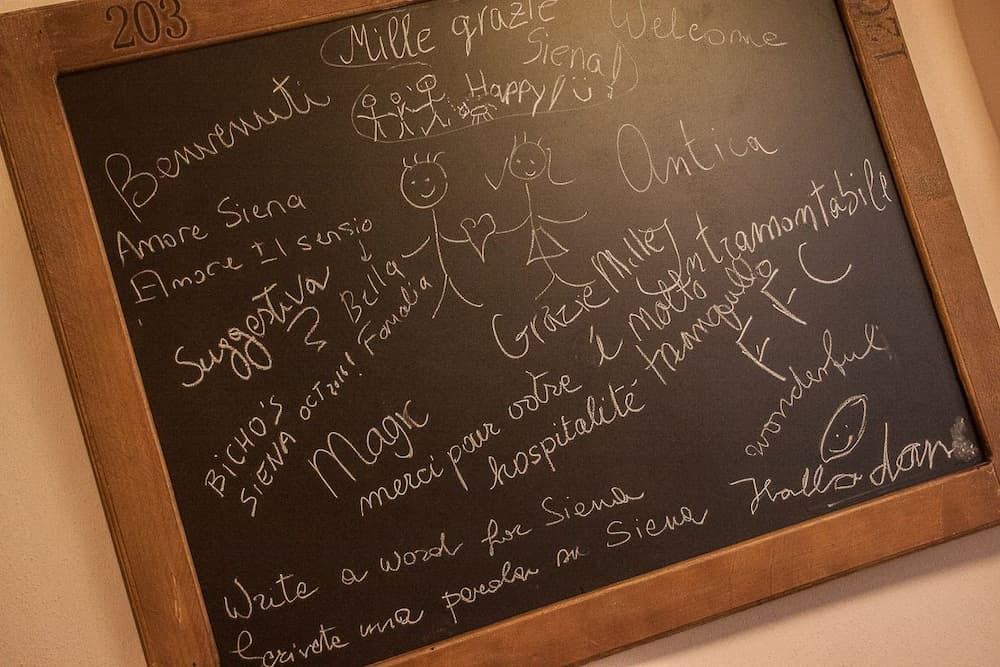 203
Mille grazie
Siena!
Welcome
Happy!
Benvenuti
Antica
Amore Siena
Amore Il sensio
Suggestiva
Bella
Famalia
Intramontabile
Grazie Mille,
è molto
tranquillo
F F C
BICHO'S
SIENA OCT 2016!
Magic
merci pour votre
hospitalité
wonderful
Write a word for Siena
Scrivete una parola su Siena